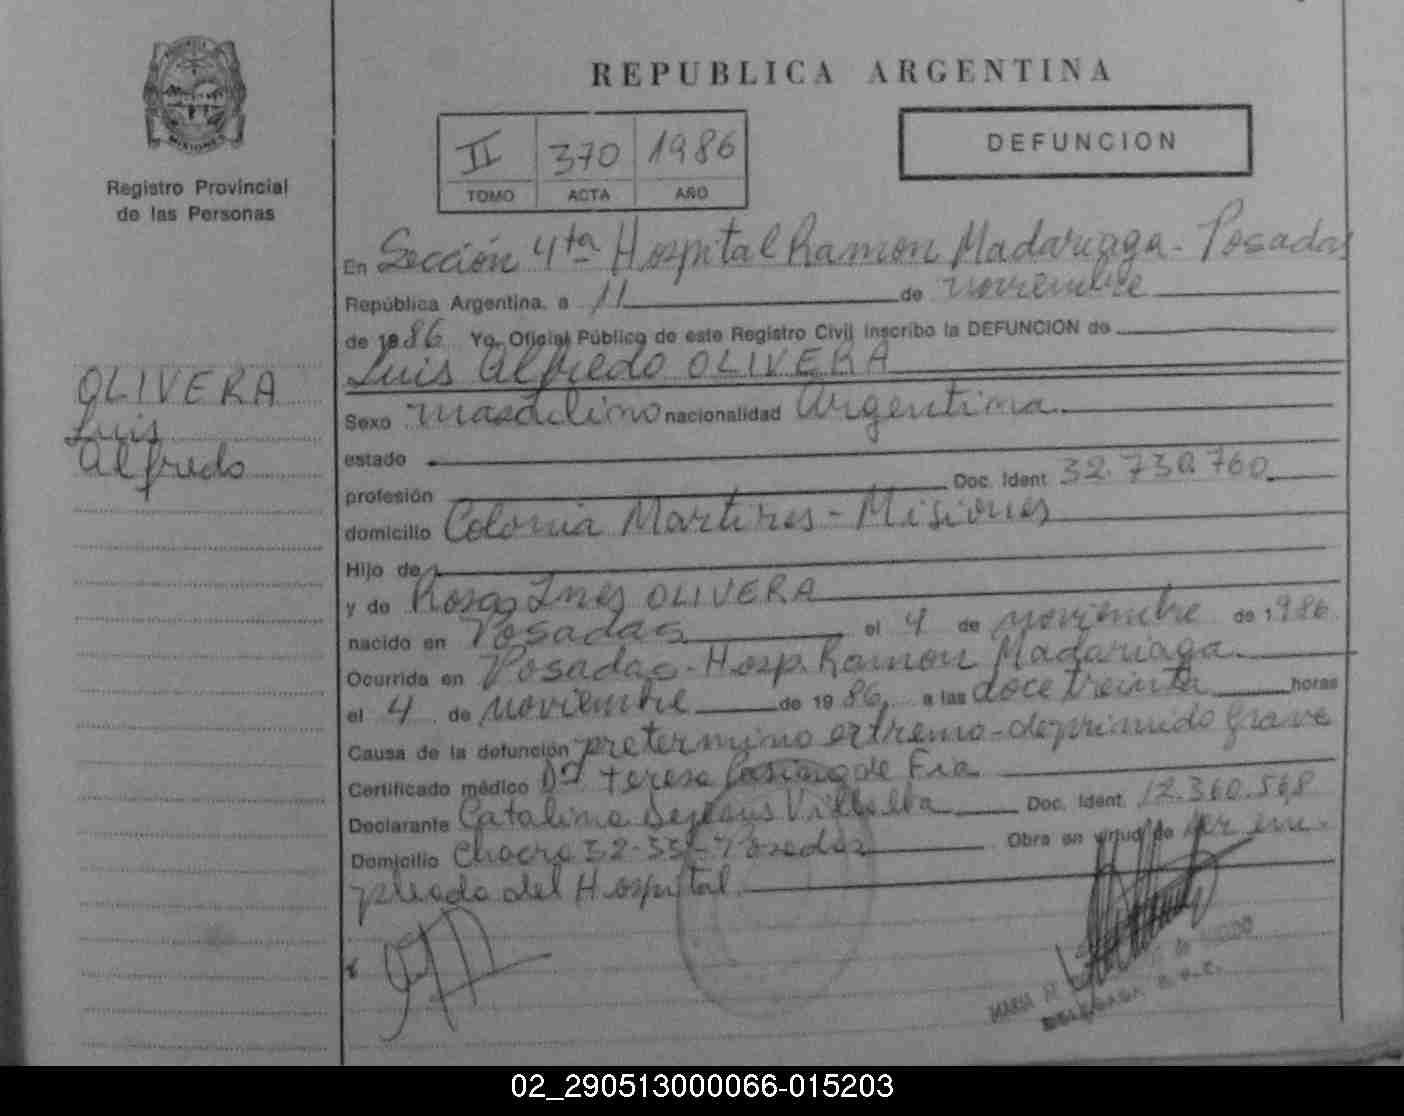 REPUBLICA ARGENTINA
II 370 1986
TOMO ACTA AÑO
DEFUNCION
Registro Provincial
de las Personas
En Sección 4ta Hospital Ramon Madariaga - Posadas
República Argentina, a 11 de noviembre
de 1986 Yo, Oficial Público de este Registro Civil inscribo la DEFUNCION de
Luis Alfredo OLIVERA
OLIVERA
Luis
Alfredo
Sexo masculino nacionalidad Argentina
estado
profesión Doc. Ident. 32.730.760
domicilio Colonia Martires - Misiones
Hijo de
y de Rosa Ines OLIVERA
nacido en Posadas el 4 de noviembre de 1986
Ocurrida en Posadas - Hosp. Ramon Madariaga
el 4 de noviembre de 1986 a las doce treinta horas
Causa de la defunción pretermino extremo - deprimido grave
Certificado médico Dra Teresa de Fra
Declarante Catalina Villalba Doc. Ident. 12.360.568
Domicilio Chacra 32-33 - Posadas Obra en virtud de ser em-
pleada del Hospital
MARIA
DELEGADA
02_290513000066-015203